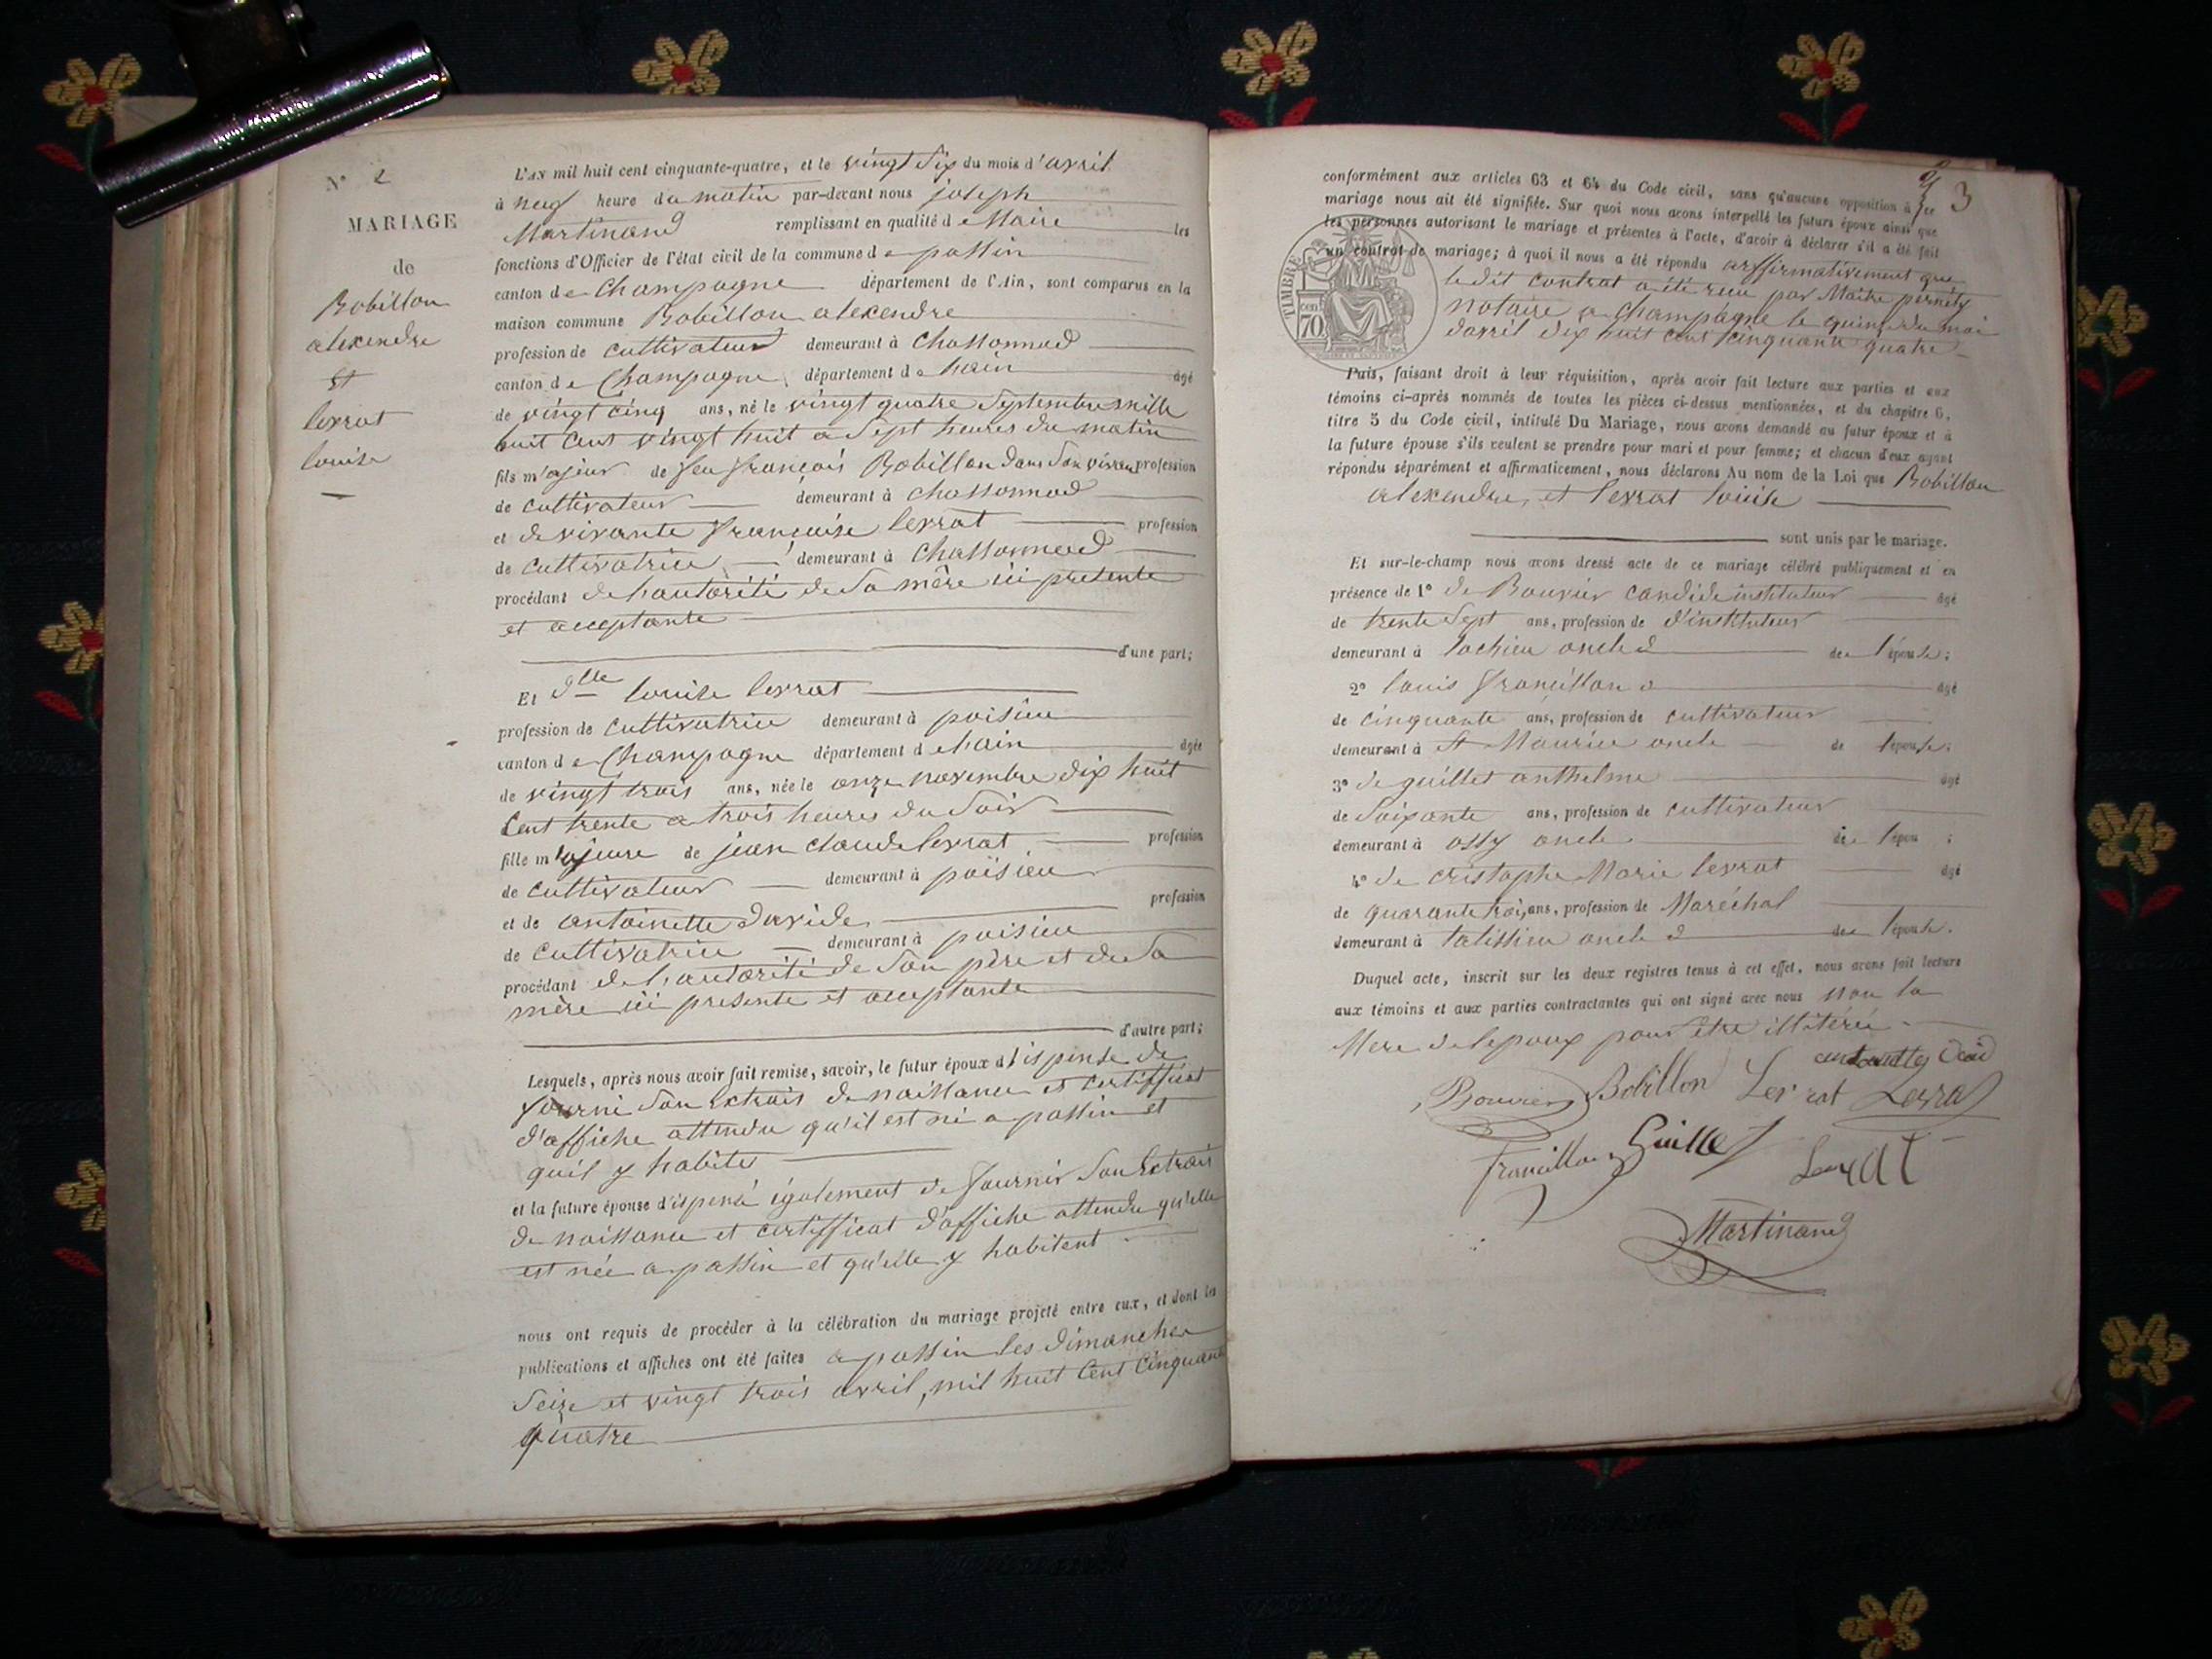 N° 2
MARIAGE
de
Bobillon
alexendre
Et
levrat
louise
L'AN mil huit cent cinquante-quatre, et le vingt Six du mois d'avril
à neuf heure du matin par-devant nous joseph
Martinand remplissant en qualité de Maire les
fonctions d'Officier de l'état civil de la commune de passin
canton de Champagne département de l'Ain, sont comparus en la
maison commune Bobillon alexendre
profession de cultivateur demeurant à Chassonnod
canton de Champagne département de hain âgé
de vingt cinq ans, né le vingt quatre Septembre mille
huit cent vingt huit a Sept heures du matin
fils majeur de feu françois Bobillon dans Son vivan profession
de cultivateur demeurant à chassonnod
et de vivante françoise levrat profession
de cultivatrice demeurant à Chassonnod
procédant de hautorité de Sa mère ici presente
et acceptante
d'une part;
Et dlle louise levrat
profession de cultivatrice demeurant à poisieu
canton de Champagne département de hain âgée
de vingt trois ans, née le onze novembre dix huit
Cent trente a trois heures du Soir
fille majeure de jean claude levrat profession
de cultivateur demeurant à poisieu
et de antoinette davide profession
de cultivatrice demeurant à poisieu
procédant de l'autorité de Son père et de Sa
mère ici presente et acceptante
d'autre part;
Lesquels, après nous avoir fait remise, savoir, le futur époux dispensé de
fourni Son Extrais de naissance et certifficat
d'affiche attendu qu'il est né a passin et
quil y habite
et la future épouse dispensé également de fournir Son Extrais
de naissance et certifficat d'affiche attendu qu'elle
est née a passin et qu'elle y habitent
nous ont requis de procéder à la célébration du mariage projeté entre eux, et dont les
publications et affiches ont été faites a passin les dimanches
Seize et vingt trois avril, mil huit Cent Cinquante
quatre
3
conformément aux articles 63 et 64 du Code civil, sans qu'aucune opposition à
mariage nous ait été signifiée. Sur quoi nous avons interpellé les futurs époux ainsi que
les personnes autorisant le mariage et présentes à l'acte, d'avoir à déclarer s'il a été fait
un contrat de mariage; à quoi il nous a été répondu affirmativement que
TIMBRE
cen
70
le dit contrat a été reçu par Maitre pernéty
notaire a champagne le quinze du moi
davril dix huit cent cinquante quatre
Puis, faisant droit à leur réquisition, après avoir fait lecture aux parties et aux
témoins ci-après nommés de toutes les pièces ci-dessus mentionnées, et du chapitre 6,
titre 5 du Code civil, intitulé Du Mariage, nous avons demandé au futur époux et à
la future épouse s'ils veulent se prendre pour mari et pour femme; et chacun d'eux ayant
répondu séparément et affirmativement, nous déclarons Au nom de la Loi que Bobillon
alexendre, et levrat louise
sont unis par le mariage.
Et sur-le-champ nous avons dressé acte de ce mariage célébré publiquement et en
présence de 1° de Bouvier candide instituteur âgé
de trente Sept ans, profession de d'instituteur
demeurant à lochieu oncle de l'épouse;
2° louis francillon âgé
de cinquante ans, profession de cultivateur
demeurant à St Maurice oncle de lépouse;
3° de guillet anthelme âgé
de Soixante ans, profession de cultivateur
demeurant à ossy oncle de l'épou ;
4° de cristophe Marie levrat âgé
de quarante trois, ans, profession de Maréchal
demeurant à talissieu oncle de l'épouse.
Duquel acte, inscrit sur les deux registres tenus à cet effet, nous avons fait lecture
aux témoins et aux parties contractantes qui ont signé avec nous non la
Mere de lepoux pour être illitérée
Bouvier Bobillon Levrat Levrat
francillon Guillet Levrat
Martinand